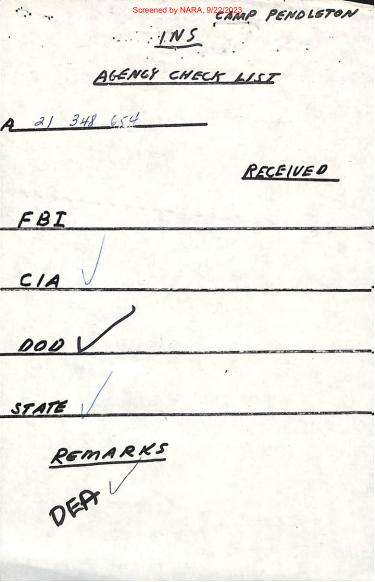 Screened by NARA, 9/22/2023
CAMP PENDLETON
INS
AGENCY CHECK LIST
A 21 348 654
RECEIVED
FBI
CIA ✓
DOD ✓
STATE ✓
REMARKS
DEA ✓